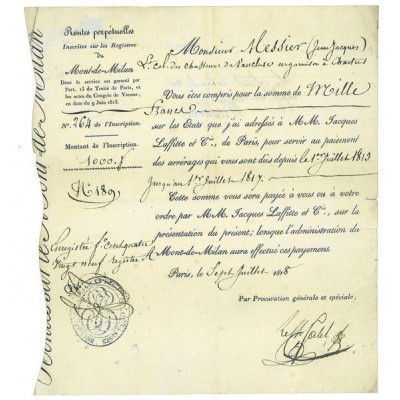 Rentes perpétuelles
Inscrites sur les Registres
du
Mont-de-Milan
Dont le service est garanti par
l'art. 13 du Traité de Paris, et
les actes du Congrès de Vienne,
en date du 9 Juin 1815.
N.º 264 de l'Inscription.
Montant de l'Inscription.
1000. f
Nº 1891
Monsieur Messier (Jean Jacques)
Lt. Col. des Chasseurs de Vaucluse en garnison à Chartres
Vous êtes compris pour la somme de Mille
Francs
sur les Etats que j'ai adressés à MM. Jacques
Laffitte et Cie., de Paris, pour servir au paiement
des arrérages qui vous sont dûs depuis le 1er Juillet 1813
jusqu'au 1er Juillet 1817.
Cette somme vous sera payée à vous ou à votre
ordre par MM. Jacques Laffitte et Cie., sur la
présentation du présent; lorsque l'administration du
Mont-de-Milan aura effectué ces payemens.
Paris, le Sept Juillet 1818
Par Procuration générale et spéciale,
Enregistré fº cent quatre
Vingt neuf registre A